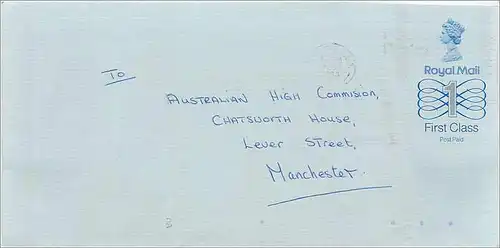 Royal Mail
To
1
Australian High Commision,
Chatsworth House,
First Class
Post Paid
Lever Street,
Manchester.